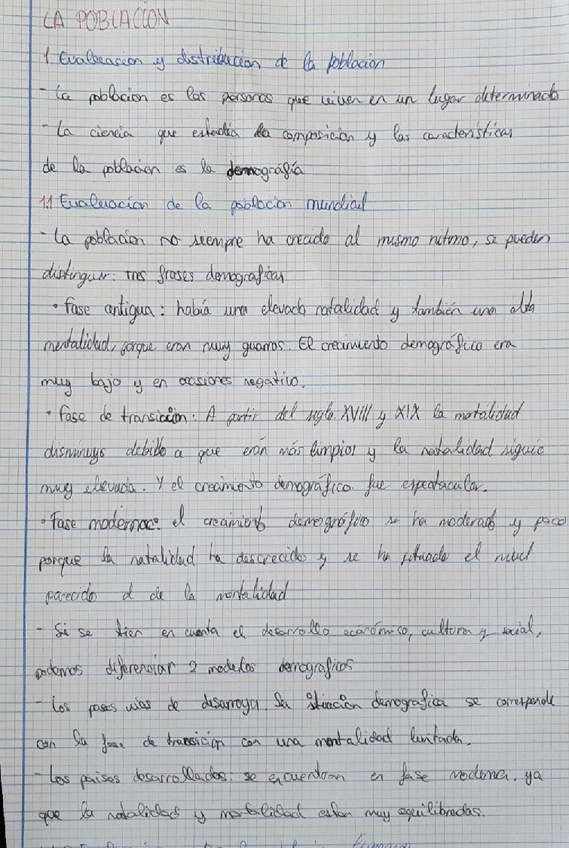 LA POBLACIÓN
1 Evaluacion y distribucion de la población
- La poblacion es las personas que viven en un lugar determinado
- La ciencia que estudia la composición y las características
de la poblacion es la demografía
1.1 Evaluacion de la poblacion mundial
- La poblacion no siempre ha crecido al mismo ritmo, se pueden
distinguir: tres frases demograficas
• Fase antigua: había una elevada natalidad y también una alta
mortalidad, porque eran muy guarros. El crecimiento demográfico era
muy bajo y en ocasiones negativo.
• Fase de transicion: A partir del siglo XVIII y XIX la mortalidad
disminuyo debido a que eran más limpios y la natalidad siguio
muy elevada. Y el creaimento demográfico fue espectacular.
• Fase moderna: el creaimento demográfico se ha moderado y poco
porque la natalidad ha descrecido y se ha situado el nivel
parecido al de la mortalidad
- Si se tien en cuenta el desarrollo económico, cultura y social,
podemos diferenciar 2 modelos demograficos
- Los paises vias de desarroya. Su situación demografica se corresponde
con la fase de transicion con una mortalidad limitada.
- Los paises desarrollados: se encuentran en fase moderna, ya
que la natalidad y mortalidad estan muy equilibradas.